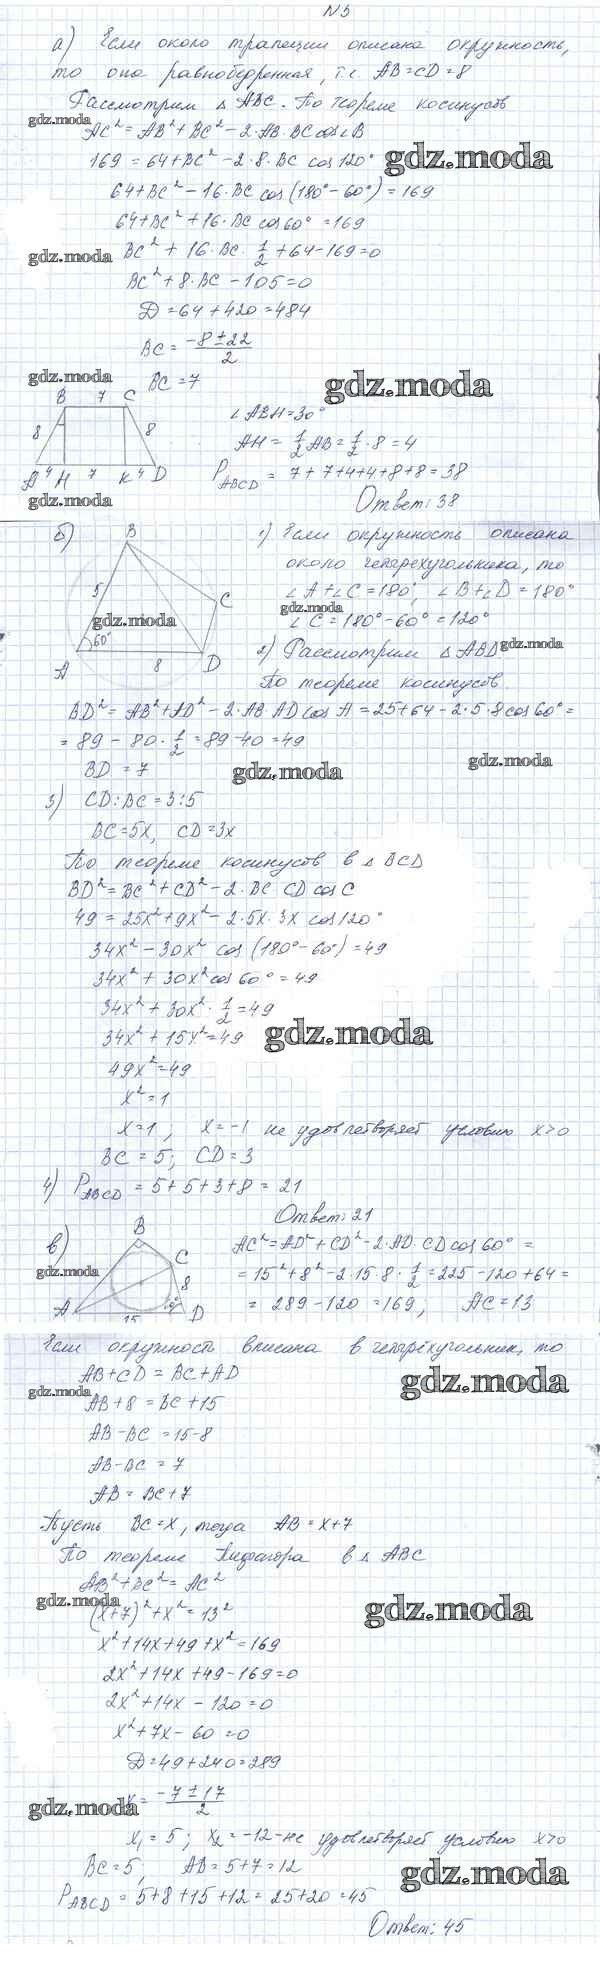 №3
а) Если около трапеции описана окружность,
то она равнобедренная, т.е. AB=CD=8
Рассмотрим △ABC. По теореме косинусов
gdz.moda
AC²=AB²+BC²-2·AB·BC cos∠B
169=64+BC²-2·8·BC cos120°
gdz.moda
64+BC²-16·BC cos(180°-60°)=169
64+BC²+16·BC cos60°=169
gdz.moda
BC²+16·BC·1/2+64-169=0
BC²+8·BC-105=0
D=64+420=484
BC=(-8±22)/2
gdz.moda
BC=7
gdz.moda
B 7 C
∠ABH=30°
8 8
AH=1/2AB=1/2·8=4
A 4 H 7 K 4 D
P ABCD = 7+7+4+4+8+8=38
gdz.moda
Ответ: 38
б)
B
1) Если окружность описана
около четырехугольника, то
5
C
∠A+∠C=180°, ∠B+∠D=180°
gdz.moda
gdz.moda
∠C=180°-60°=120°
60°
A 8 D
2) Рассмотрим △ABD
gdz.moda
По теореме косинусов
BD²=AB²+AD²-2·AB·AD cosA=25+64-2·5·8cos60°=
=89-80·1/2=89-40=49
BD=7
gdz.moda
gdz.moda
3) CD:BC=3:5
BC=5x, CD=3x
По теореме косинусов в △BCD
BD²=BC²+CD²-2·BC·CD cosC
49=25x²+9x²-2·5x·3x cos120°
34x²-30x² cos(180°-60°)=49
34x²+30x²cos60°=49
34x²+30x²·1/2=49
34x²+15x²=49
gdz.moda
49x²=49
x²=1
x=1; x=-1 не удовлетворяет условию x>0
BC=5; CD=3
4) P ABCD=5+5+3+8=21
Ответ: 21
в)
B
C
8
A 15 D
gdz.moda
AC²=AD²+CD²-2·AD·CDcos60°=
=15²+8²-2·15·8·1/2=225-120+64=
=289-120=169; AC=13
Если окружность вписана в четырёхугольник, то
AB+CD=BC+AD
gdz.moda
gdz.moda
AB+8=BC+15
AB-BC=15-8
AB-BC=7
AB=BC+7
Пусть BC=x, тогда AB=x+7
По теореме Пифагора в △ABC
AB²+BC²=AC²
gdz.moda
gdz.moda
(x+7)²+x²=13²
x²+14x+49+x²=169
2x²+14x+49-169=0
2x²+14x-120=0
x²+7x-60=0
D=49+240=289
x=(-7±17)/2
gdz.moda
x₁=5; x₂=-12-не удовлетворяет условию x>0
BC=5; AB=5+7=12
gdz.moda
P ABCD=5+8+15+12=25+20=45
Ответ: 45